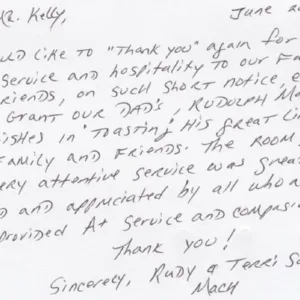 R. Kelly, June 2
uld like to "Thank you" again for
Service and hospitality to our Fa
riends, on such short notice, e
Grant our Dad's, Rudolph Ma
ishes in 'Toasting' His great Li
amily and Friends. The room,
ery attentive service was great
d and appriciated by all who a
provided A+ service and compassi
Thank you!
Sincerely, Rudy & Terri S
Mach